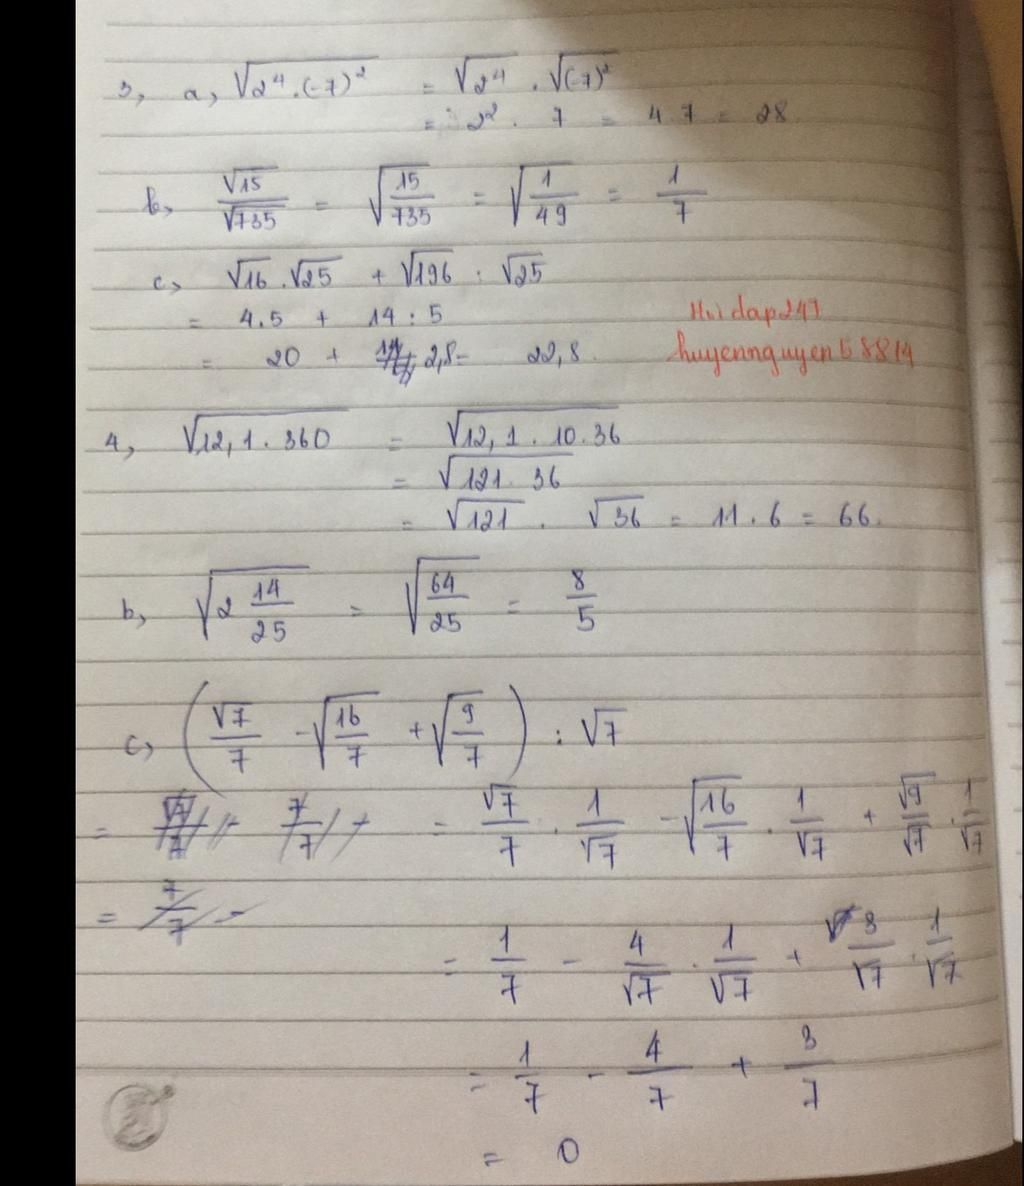 3, a, √(2⁴.(-7)²) = √(2⁴) . √((-7)²)
= 2² . 7 = 4.7 = 28
b, √15/√735 = √(15/735) = √(1/49) = 1/7
c, √16.√25 + √196 : √25
= 4.5 + 14 : 5
= 20 + 2,8 = 22,8
Hoidap247
huyennguyen58814
4, √(12,1.360) = √(12,1.10.36)
= √(121.36)
= √121 . √36 = 11.6 = 66.
b, √(2 14/25) = √(64/25) = 8/5
c, (√7/7 - √(16/7) + √(9/7)) : √7
= = √7/7 . 1/√7 - √(16/7) . 1/√7 + √9/√7 . 1/√7
= 7/7 -
= 1/7 - 4/√7 . 1/√7 + 3/√7 . 1/√7
= 1/7 - 4/7 + 3/7
= 0